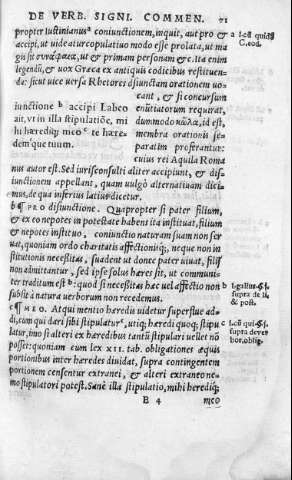 DE VERB. SIGNI. COMMEN. 71
propter Iustinianus a coniunctionem, inquit, aut pro &
accipi, ut uideatur copulatiuo modo esse prolata, ut ma
gis sit συνάφεια, ut & primam personam &c. Ita enim
legendũ, & uox Græca ex antiquis codicibus restituen-
da: sicut uice uersa Rhetores disiunctam orationem uo-
cant, & si concursum
iunctione b accipi Labeo
ait, vt in illa stipulatiõe, mi
hi hærediq́; meo c te hære-
démque tuum.
enũtiatorum requirat,
dummodo κῶλα, id est,
membra orationis se-
paratim proferantur:
cuius rei Aquila Roma
nus autor est. Sed iurisconsulti aliter accipiunt, & dis
iunctionem appellant, quam uulgò alternatiuam dici-
mus, de qua inferius latius dicetur.
b ¶ PRO disiunctione. Quapropter si pater filium,
& ex eo nepotes in potestate habens ita instituat, filium
& nepotes instituo, coniunctio naturam suam non ser
uat, quoniam ordo charitatis affectioniq́;, neque non in
stitutionis necessitas, suadent ut donec pater uiuat, filij
non admittantur, sed ipse solus hæres sit, ut communi-
ter traditum est b: quod si necessitas hæc uel affectio non
subsit à natura uerborum non recedemus.
c ¶ MEO. Atqui mentio hæredis uidetur superflue ad-
di, cum qui dari sibi stipulatur c, utiq́; hæredi quoq́; stipu
latur, imo si alteri ex hæredibus tantũ stipulari uellet nõ
posset: quoniam cum lex XII. tab. obligationes æquis
portionibus inter hæredes diuidat, supra contingentem
portionem censentur extranei, & alteri extraneo ne-
mo stipulatori potest. Sanè illa stipulatio, mihi hærediq́;
B 4 meo